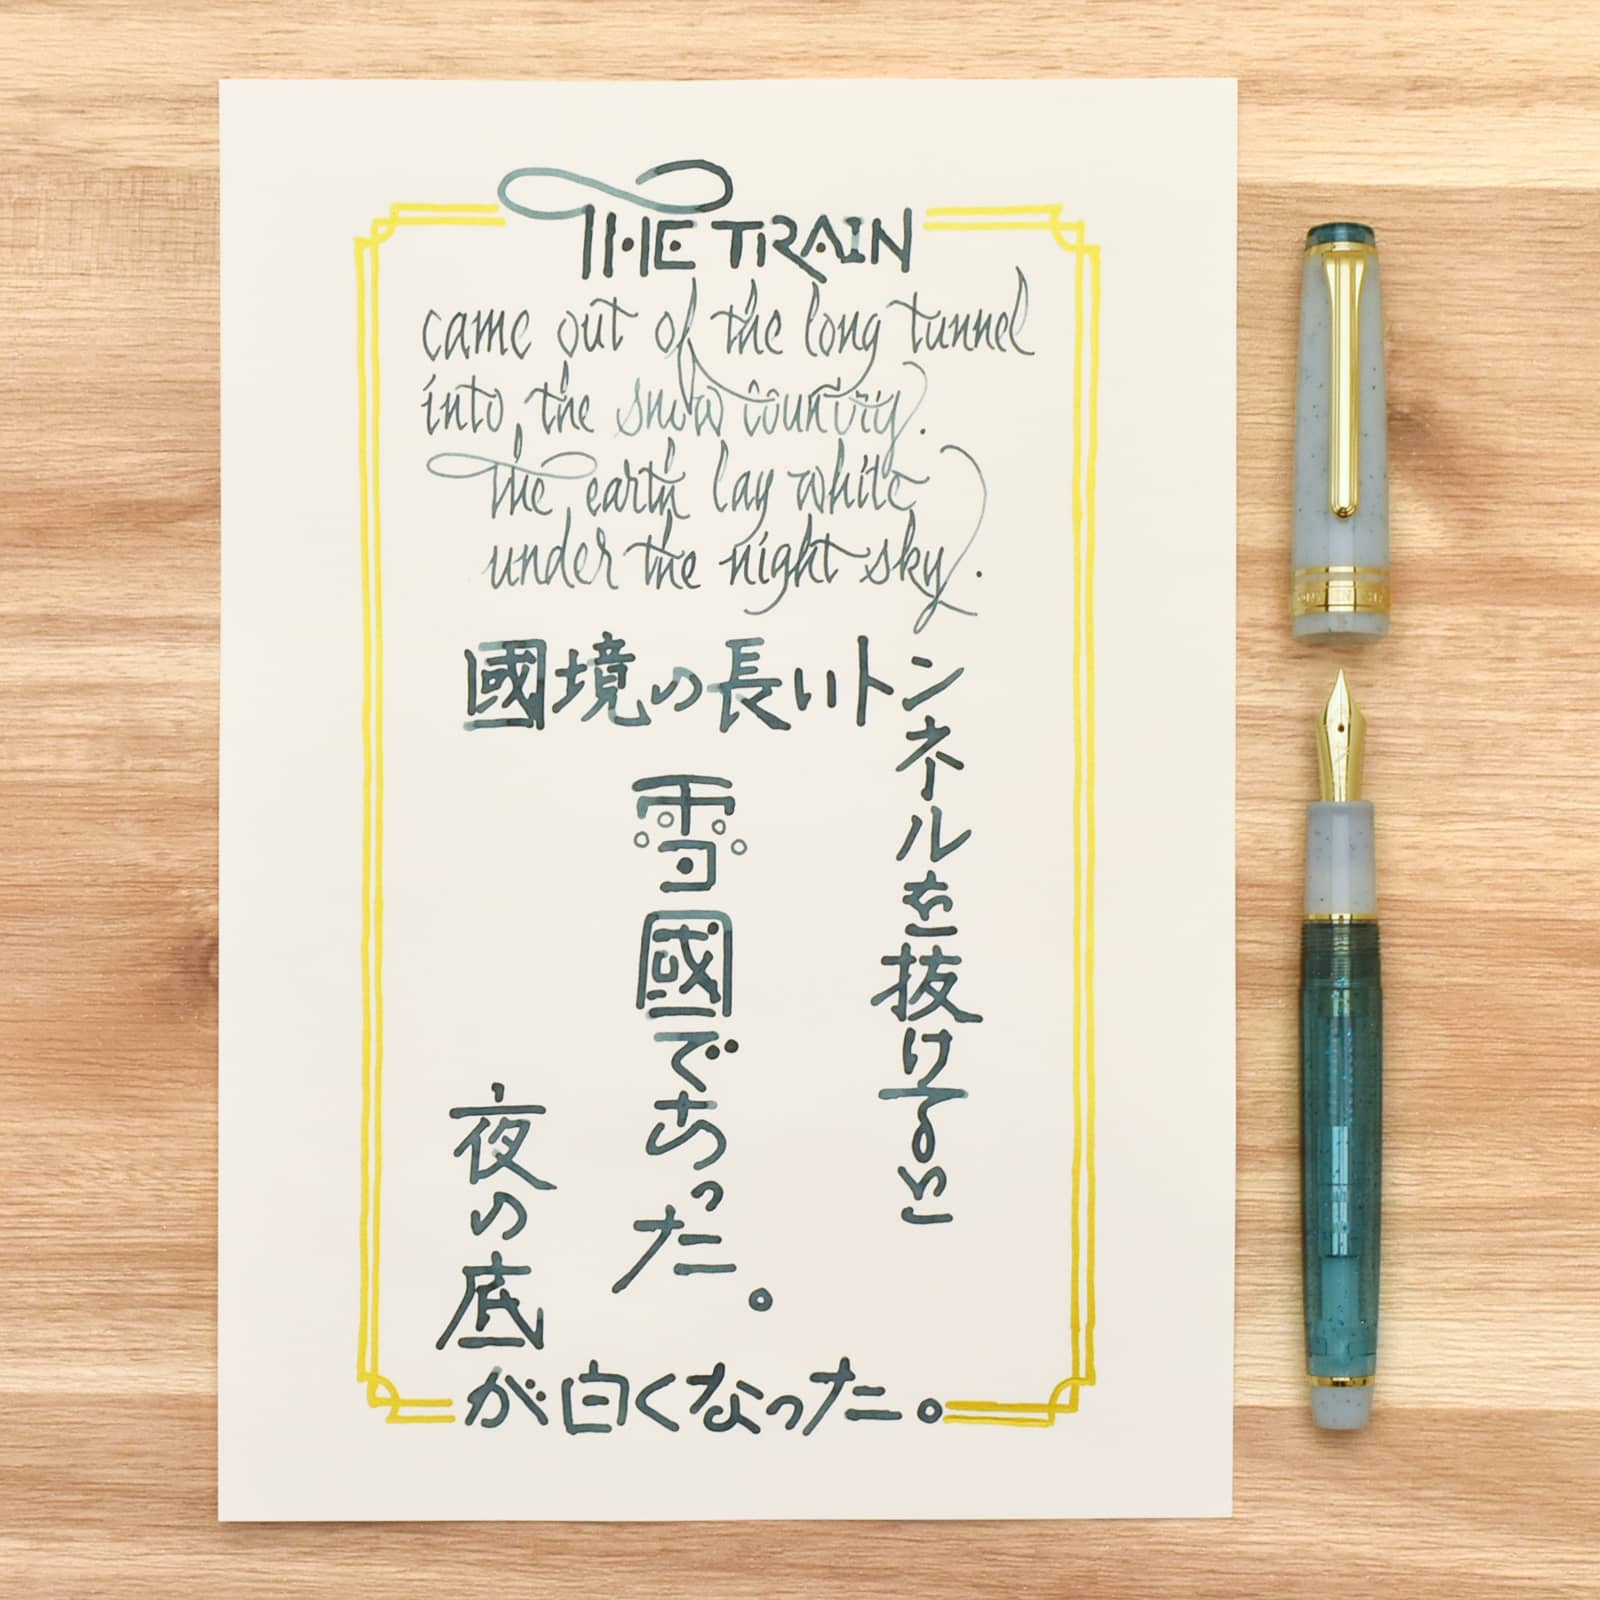 THE TRAIN
came out of the long tunnel
into the snow country.
the earth lay white
under the night sky.
國境の長いトン
ネルを抜けると
雪國であった。
夜の底
が白くなった。